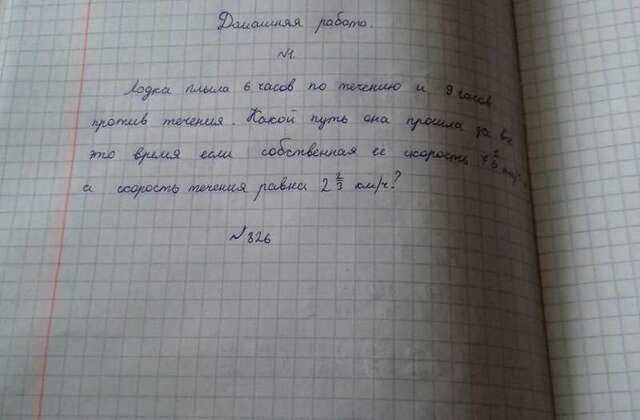 Домашняя работа.
№1.
Лодка плыла 6 часов по течению и 9 часов
против течения. Какой путь она прошла за
это время если собственная ее скорость
а скорость течения равна 2 2/3 км/ч?
№326